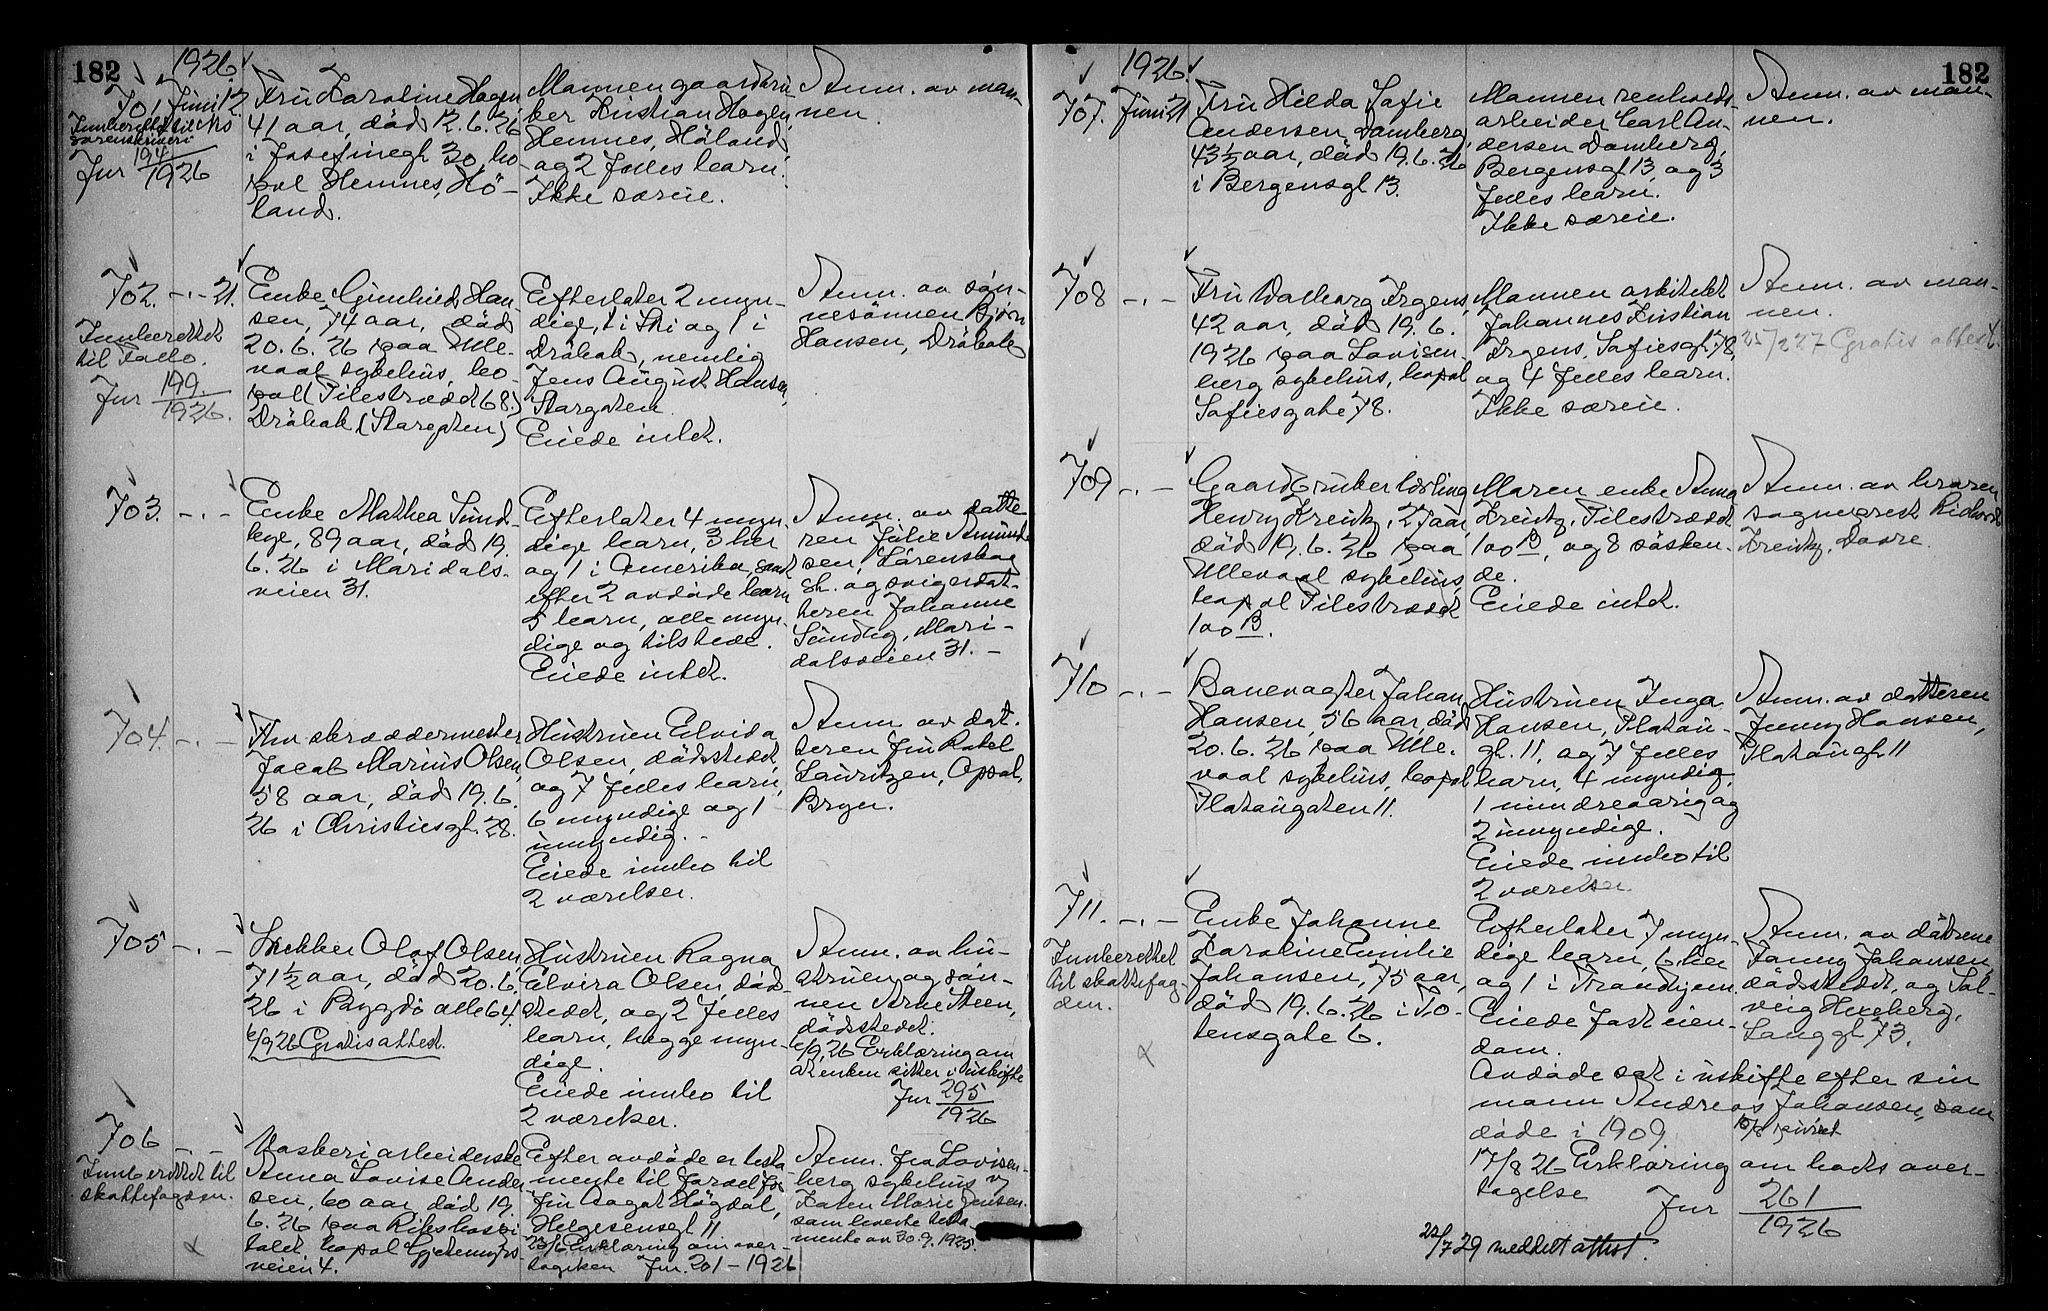 182
1926.
701 Juni 12
Innberettet til
sorenskriveri
Jnr 194/1926
Fru Karoline Hagen
41 aar, död 12.6.26
i Josefinegt. 30, bo
pæl Hemnes, Hö-
land.
Mannen gaardbru
ker Kristian Hagen,
Hemnes, Höland,
og 2 felles barn.
Ikke særeie.
Anm. av man-
nen.
702. -.- 21.
Innberettet
til Fallo.
Jnr 199/1926.
Enke Gunhild Han
sen, 74 aar, död
20.6.26 paa Ulle-
vaal sykehus, bo-
pæl (Pilestrædet 68.)
Dröbak (Storgaten)
Efterlater 2 myn-
dige, 1 i Ski og 1 i
Dröbak, nemlig
Jens August Hansen,
Storgaten.
Eiede intet.
Anm. av sön-
nesönnen Björn
Hansen, Dröbak
703. -.-
Enke Mathea Sund
bye, 89 aar, död 19.
6.26 i Maridals-
veien 31.
Efterlater 4 myn
dige barn, 3 her
og 1 i Amerika, samt
efter 2 avdöde barn
5 barn, alle myn-
dige og tilstede.
Eiede intet.
Anm. av datte
ren Julie Amund
sen, Lörenskog
st. og svigerdat-
teren Johanne
Sundby, Mari-
dalsveien 31. -
704. -.-
Fhv skræddermester
Jacob Marius Olsen,
58 aar, död 19.6.
26 i Christiesgt. 28.
Hustruen Elvida
Olsen, dödsstedet,
og 7 felles barn,
6 myndige og 1
umyndig. -
Eiede innbo til
2 værelser.
Anm. av dat-
teren fru Rakel
Lauritzen, Opsal,
Bryn.
705 -.-
Snekker Olaf Olsen
71½ aar, död 20.6.
26 i Bygdö alle 64.
6/9 26 Gratis attest.
Hustruen Ragna
Elvira Olsen, död-
stedet, og 2 felles
barn, begge myn-
dige.
Eiede innbo til
2 værelser.
Anm. av hu-
struen og søn-
nen Arne Steen,
dödsstedet.
6/9 26 Erklæring om
at enken sitter i uskifte
Jnr 295/1926
706 -.-
Innberettet til
skattefogden.
Vaskeriarbeiderske
Anna Lovise Ander
sen, 60 aar, död 19.
6.26 paa Rikshospi
talet, bopæl Gjetemyrs-
veien 4.
Efter avdöde er testa
mente til fordel for
fru Aagot Høgdal,
Helgesensgt 11
23/6 Erklæring om over-
tagelsen Jnr. 201 - 1926
Anm. fra Lovisen-
berg sykehus v/
Karen Marie Jensen
som leverte testa
mente av 30.9.1925.
182
1926.
707. Juni 21
Fru Hilda Sofie
Andersen Damberg,
43½ aar, död 19.6.26
i Bergensgt 13.
Mannen renholds-
arbeider Carl An-
dersen Damberg,
Bergensgt 13, og 3
felles barn.
Ikke særeie.
Anm. av man-
nen.
708 -.-
Fru Valborg Irgens,
42 aar, död 19.6.
1926 paa Lovisen-
berg sykehus, bopæl
Sofiesgate 78.
Mannen arkitekt
Johannes Kristian
Irgens, Sofiesgt 78,
og 4 felles barn.
Ikke særeie.
Anm. av man-
nen.
25/2 27 Gratis attest.
709 -.-
Gaardbrukerlærling
Henry Kreutz, 27 aar
död 19.6.26 paa
Ullevaal sykehus,
bopæl Pilestrædet
100 B.
Moren enke Anna
Kreutz, Pilestrædet
100 B, og 8 sösken-
de.
Eiede intet.
Anm. av broren
sogneprest Richard
Kreutz, Dovre.
710 -.-
Banevogter Johan
Hansen, 56 aar, död
20.6.26 paa Ulle-
vaal sykehus, bopæl
Platougaten 11.
Hustruen Inga
Hansen, Platou-
gt. 11, og 7 felles
barn, 4 myndig,
1 mindreaarig og
2 umyndige.
Eiede innbo til
2 værelser.
Anm. av datteren
Jenny Hansen,
Platougt 11
711. -.-
Innberettet
til skattefog-
den.
Enke Johanne
Karoline Emilie
Johansen, 75 aar,
död 19.6.26 i To-
tensgate 6.
Efterlater 7 myn-
dige barn, 6 her
og 1 i Trondhjem
Eiede fast eien-
dom.
Avdöde sat i uskifte efter sin
mann Andreas Johansen, som
döde i 1909.
17/8 26 Erklæring om boets over-
tagelse Jnr 261/1926
Anm. av dötrene
Fanny Johansen,
dödsstedet, og Sol-
veig Hexeberg,
Langgt 73.
22/7 29 meddelt attest.